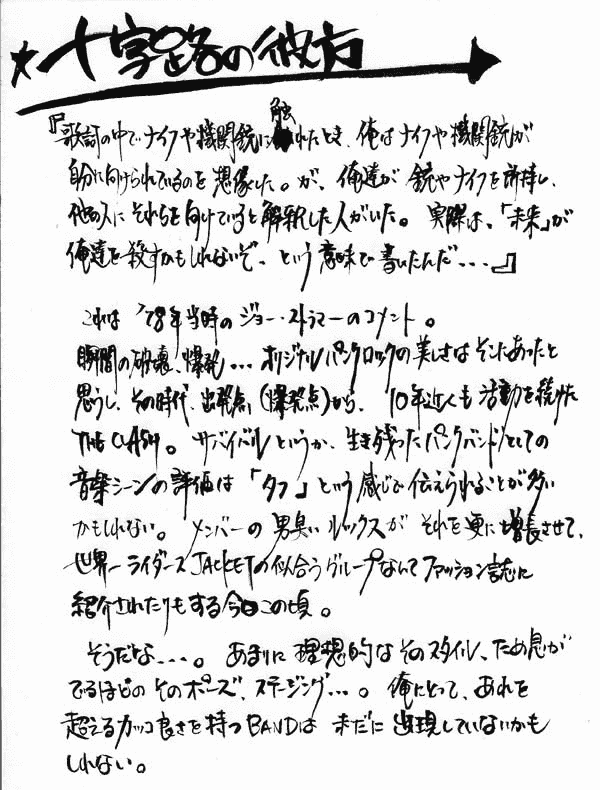 ★十字路の彼方
『歌詞の中でナイフや機関銃に触れたとき、俺はナイフや機関銃が
自分に向けられているのを想像した。が、俺達が銃やナイフを所持し、
他の人にそれらを向けていると解釈した人がいた。実際は、「未来」が
俺達を殺すかもしれないぞ、という意味で書いたんだ・・・』
これは '78年当時のジョー・ストラマーのコメント。
瞬間の破壊、爆発・・・オリジナルパンクロックの美しさはそこにあったと
思うし、その時代、出発点(爆発点)から、10年近くも活動を続けた
THE CLASH。サバイバルというか、生き残ったパンクバンドとしての
音楽シーンの評価は「タフ」という感じで伝えられることが多い
かもしれない。メンバーの男臭いルックスがそれを更に増長させて、
世界一ライダースJACKETの似合うグループなんてファッション誌に
紹介されたりもする今日この頃。
そうだよな・・・。あまりに理想的なそのスタイル、ため息が
でるほどのそのポーズ、ステージング・・・。俺にとって、あれを
超えるカッコ良さを持つBANDは未だに出現していないかも
しれない。